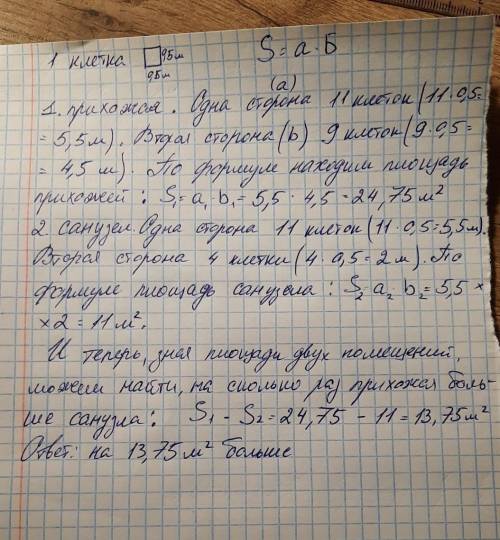 1 клетка 0,5м S = а · Б
0,5м
(а)
1. прихожая. Одна сторона 11 клеток (11 · 0,5 =
= 5,5 м). Вторая сторона (b) 9 клеток (9 · 0,5 =
= 4,5 м). По формуле находим площадь
прихожей: S₁ = a₁ · b₁ = 5,5 · 4,5 = 24,75 м²
2. санузел. Одна сторона 11 клеток (11 · 0,5 = 5,5 м).
Вторая сторона 4 клетки (4 · 0,5 = 2 м). По
формуле площадь санузела: S₂ = a₂ · b₂ = 5,5 ×
× 2 = 11 м².
И теперь, зная площади двух помещений,
можем найти, на сколько раз прихожая боль-
ше санузла: S₁ - S₂ = 24,75 - 11 = 13,75 м²
Ответ: на 13,75 м² больше